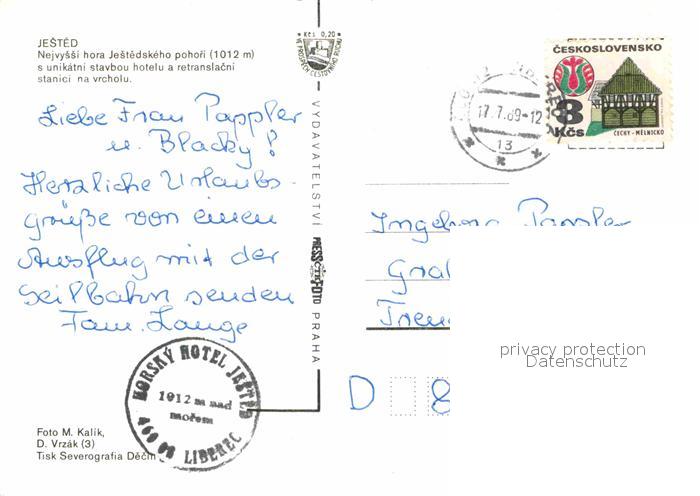 JEŠTĚD
Nejvyšší hora Ještědského pohoří (1012 m)
s unikátní stavbou hotelu a retranslační
stanicí na vrcholu.
Liebe Frau Pappler
u. Blacky!
Herzliche Urlaubs-
grüße von einem
Ausflug mit der
Seilbahn senden
Fam. Lange
HORSKÝ HOTEL JEŠTĚD
1012 m nad
mořem
LIBEREC
Foto M. Kalík,
D. Vrzák (3)
Tisk Severografia Děčín
Kčs 0,20
VE PROSPĚCH CESTOVNÍHO RUCHU
VYDAVATELSTVÍ PRESSFOTO PRAHA
17.7.89-12
13
ČESKOSLOVENSKO
3
Kčs
ČECHY - MĚLNICKO
Ingeborg Pappler
D 8
privacy protection
Datenschutz